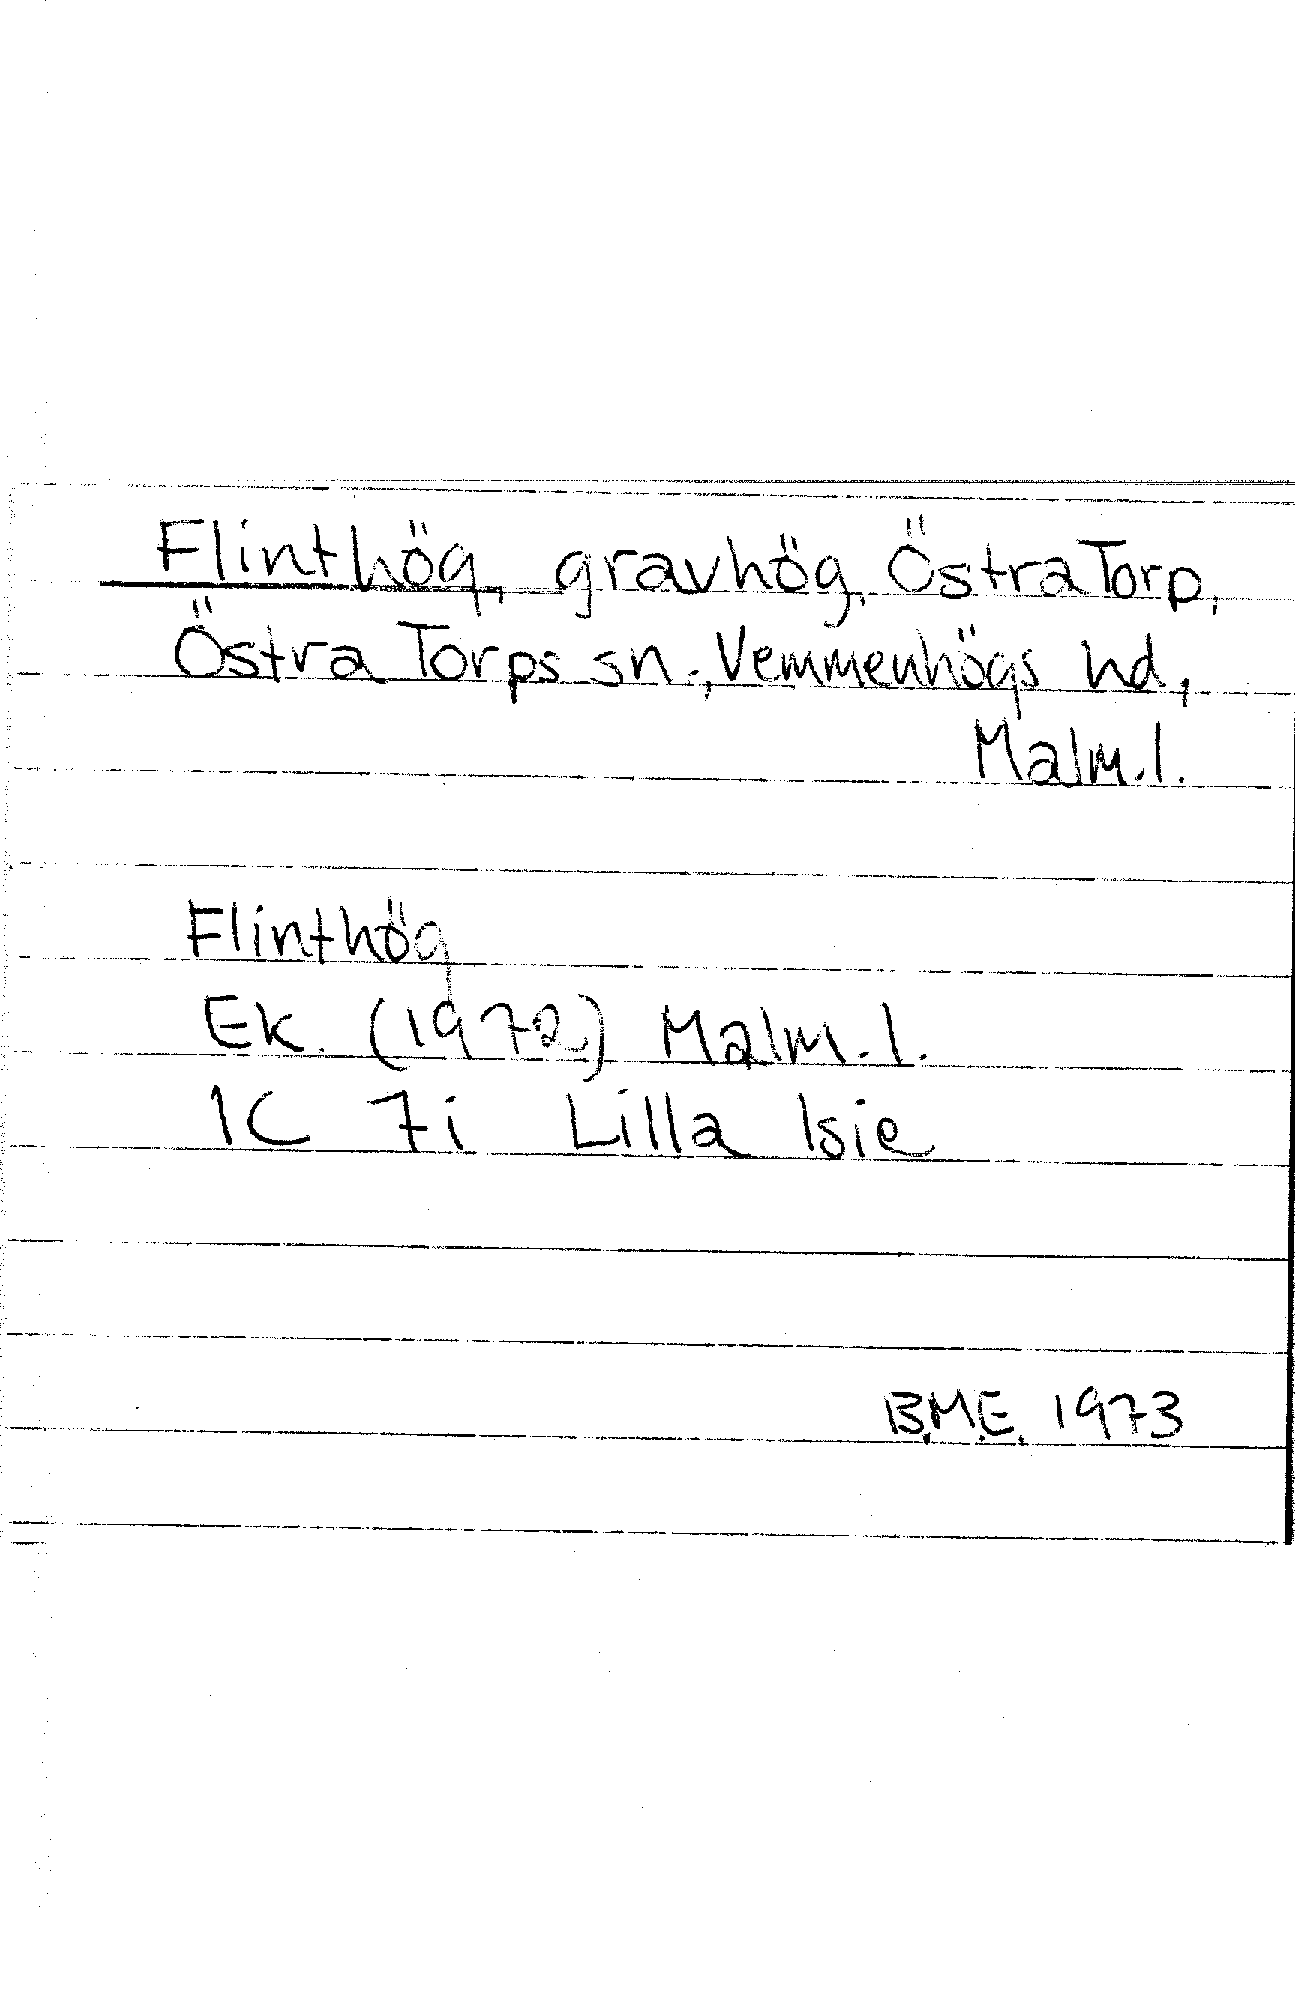 Flinthög, gravhög, Östra Torp,
Östra Torps sn., Vemmenhögs hd,
Malm.l.
Flinthög
Ek. (1972) Malm.l.
1C 7i Lilla Isie
B.M.E. 1973